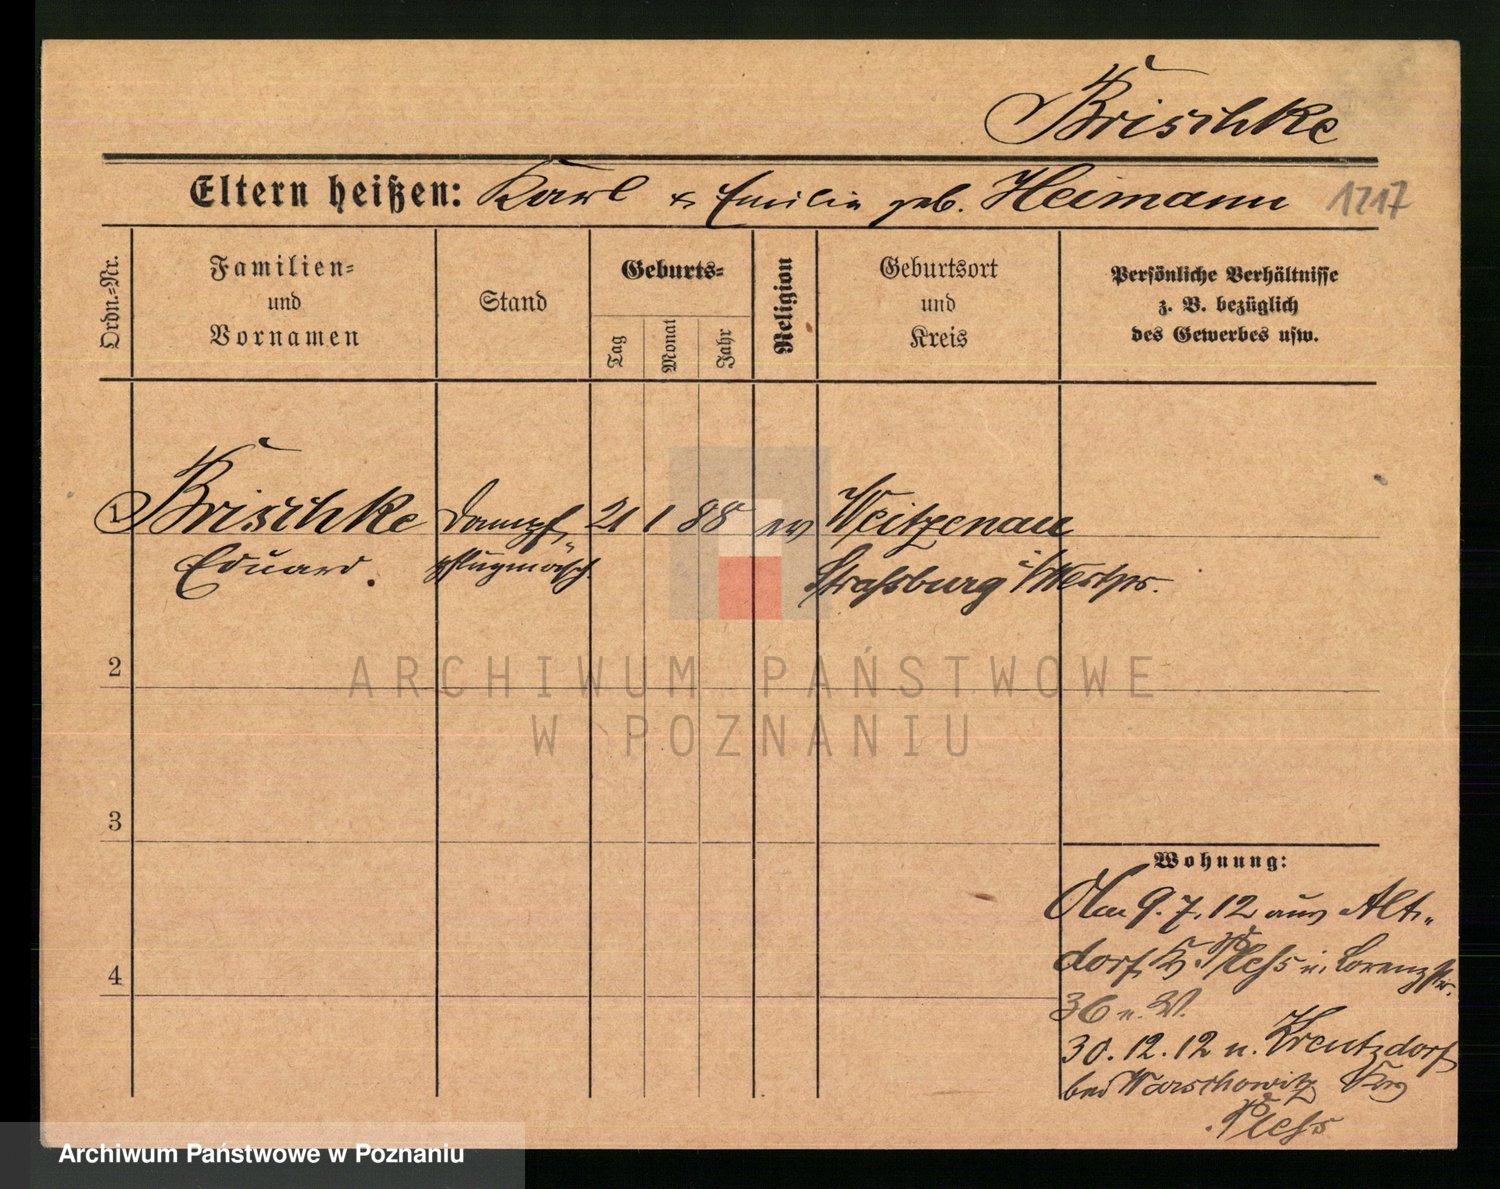 Brischke
Eltern heißen: Karl & Emilie geb. Heimann 1217
Ordn.-Nr.
Familien-
und
Vornamen
Stand
Geburts-
Tag
Monat
Jahr
Religion
Geburtsort
und
Kreis
Persönliche Verhältnisse
z. B. bezüglich
des Gewerbes usw.
1 Brischke Dampf- 21 1 88 ev Weitzenau
Eduard. pflugmasch. Straßburg i/Westpr.
2
ARCHIWUM PAŃSTWOWE
W POZNANIU
3
Wohnung:
Am 9.7.12 aus Alt-
dorf K. Pleß n. Lorenzstr.
36 n. W.
30.12.12 n. Kreutzdorf
bei Warschowitz
Pleß
4
Archiwum Państwowe w Poznaniu